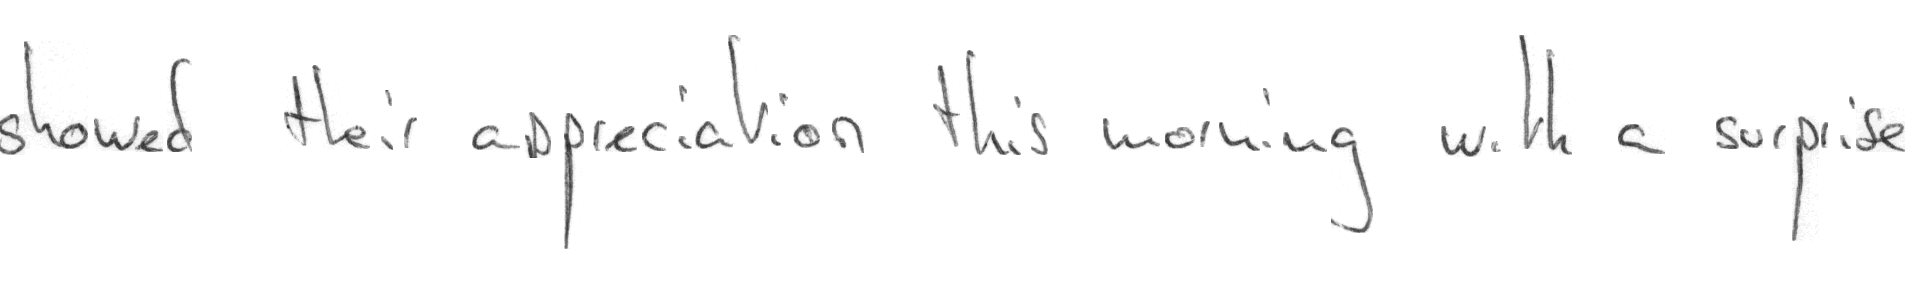 showed their appreciation this morning with a surprise